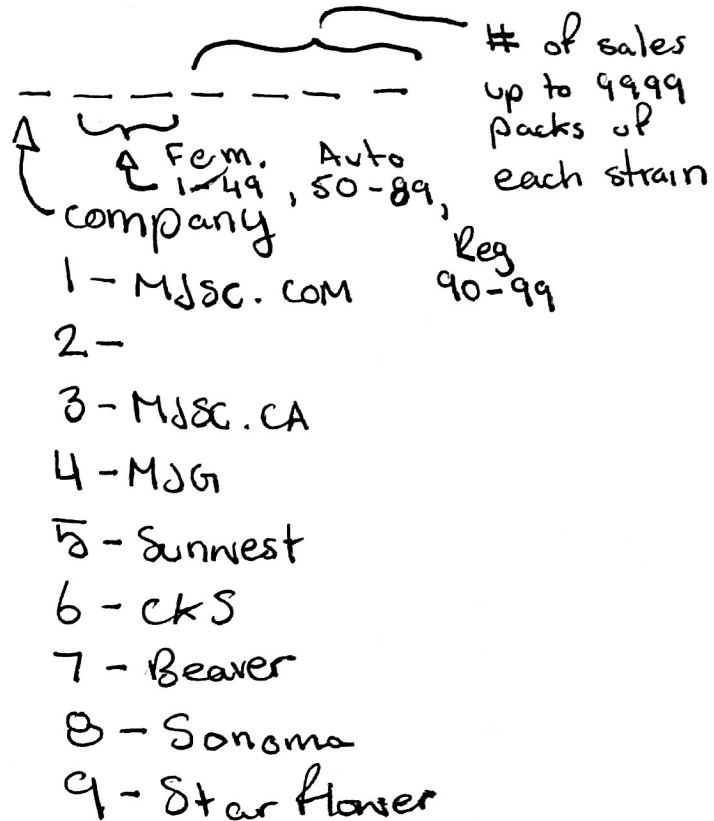 # of sales
up to 9999
packs of
each strain
_ _ _ _ _ _ _
Fem. Auto
1-49, 50-89,
Reg
90-99
company
1 - MJSC.COM
2 -
3 - MJSC.CA
4 - MJG
5 - Sunwest
6 - CKS
7 - Beaver
8 - Sonoma
9 - Star flower